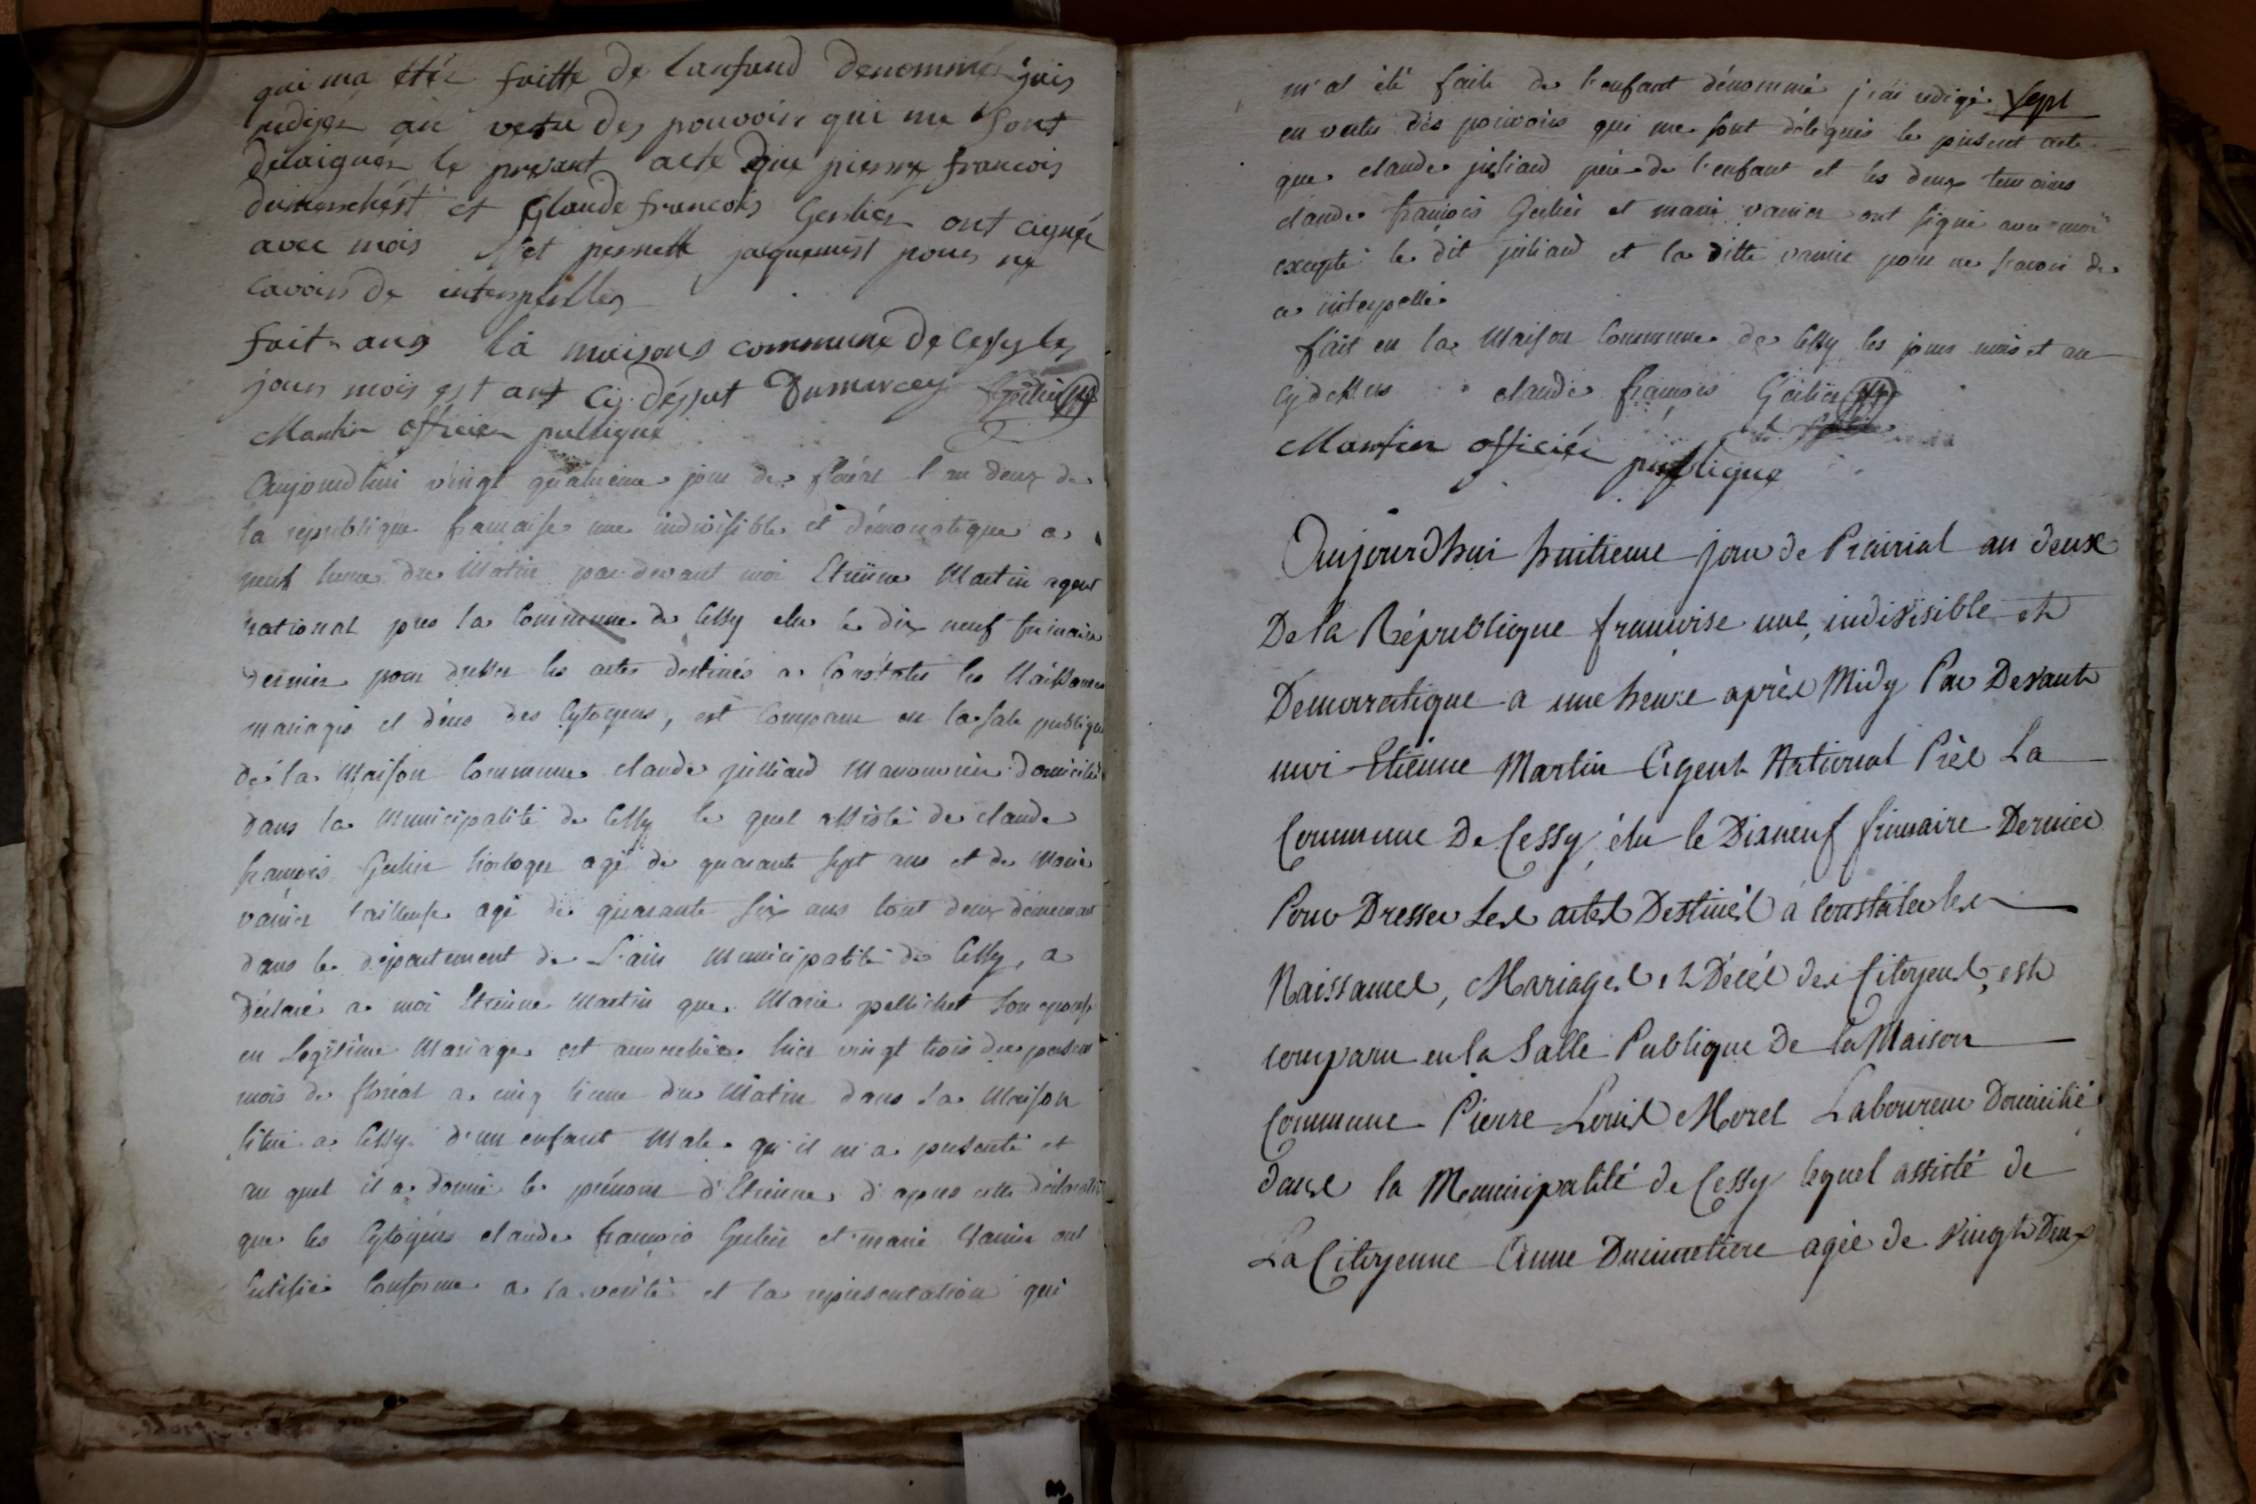 qui ma étée faitte de lanfand denommé jais
redijer an vertu des pouvoir qui me sont
délaiguer le presant acte que pierre francois
et Glaude francois Gerlier ont cignér
avec mois et pernette jaquemest pour ne
cavoir de interpeller
fait ans la maisons commune de Cessy les
jours mois est ant cy déssut Dumarcey Gerlier
Martin officier publique
Aujourdhui vingt quatrieme jour de floréal l'an deux de
la republique francaise une indivisible et démocratique a
neuf heure du Matin par devant moi Etienne Martin agent
national pres la Commune de Cessy elu le dix neuf frimaire
dernier pour dresser les actes destinés a Constater les Naissances
mariages et décès des Cytoyens, est Comparu en la sale publique
de la Maison Commune claude julliard Manouvrier domicilié
dans la Municipalité de Cessy le quel assisté de claude
françois Gerlier horloger agé de quarante sept ans et de Marie
vanier tailleuse agé de quarante six ans tout deux demeurant
dans le département de L'ain Municipalité de Cessy, a
Déclaré a moi Etienne Martin que Marie pellichet son epouse
en Legitime Mariage est accouchée hier vingt trois du present
mois de floréal a cinq heure du Matin dans la Maison
situé a Cessy d'un enfant Male qu'il m'a présenté et
au quel il a donné le prénom d'Etienne d'apres cette déclaration
que les Cytoyens claude françois Gerlier et marie Vanier ont
Certifié Conforme a la verité et la représentation qui
m'a été faite de l'enfant dénommé j'ai redigé Sept
en vertu des pouvoirs qui me sont délegués le present acte
que claude juliard pere de l'enfant et les deux temoins
claude françois Gerlier et marie vanier ont signé avec moi
excepté le dit juliard et la ditte vanier pour ne savoir de
ce interpellé
fait en la Maison Commune de Cessy les jours mois et an
cydessus claude françois Gerlier
Martin officiér publique
Aujourdhui huitieme jour de Prairial an deux
De la République francoise une, indivisible et
Democratique a une heure après Midy Par Devant
moi Etienne Martin Agent National Près La
Commune De Cessy, élu le Dixneuf frimaire Dernier
Pour Dresser Les actes Destinés à constater les
Naissances, Mariages et Décés des Citoyens, est
comparu en la Salle Publique De la Maison
Commune Pierre Louis Morel Laboureur Domicilié
dans la Municipalité de Cessy lequel assisté de
La Citoyenne Anne Ducimetiere agée de vingt Deux